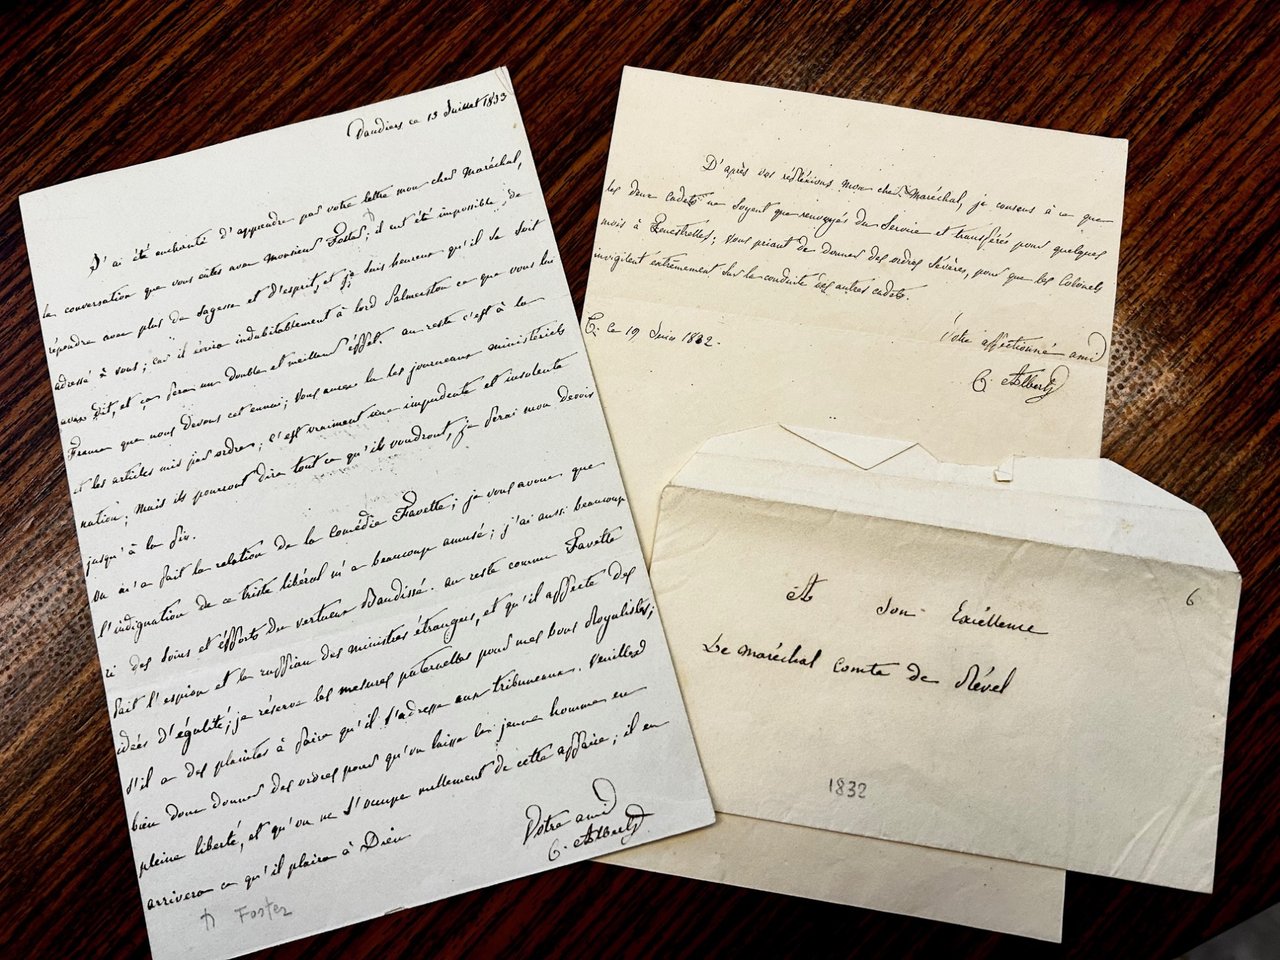 Dandiero ce 13 Juillet 1833
J'ai été enchanté d'apprendre par votre lettre mon cher Maréchal,
la conversation que vous eutes avec Monsieur Foster; il eut été impossible, de
répondre avec plus de sagesse et d'esprit, et je suis heureux qu'il se soit
adressé à vous; car il écrira indubitablement à lord Palmerston ce que vous lui
avez dit, et ça fera un double et meilleur éffet. au reste c'est à la
France que nous devons cet ennui; vous aurez lu les journeaux ministeriels
et les articles mis par ordre; c'est vraiment une impudente et insolente
nation; mais ils pourront dire tout ce qu'ils voudront, je ferai mon devoir
jusqu'à la fin.
On m'a fait la relation de la comédie Favette; je vous avoue que
l'indignation de ce triste libéral m'a beaucoup amusé; j'ai aussi beaucoup
ri des soins et éfforts du vertueux Baudissé. au reste comme Favette
fait l'espion et le ruffian des ministres étrangers, et qu'il affecte des
idées d'égalité; je réserve les mesures paternelles pour mes bons Royalistes;
s'il a des plaintes à faire qu'il s'adresse aux tribuneaux. Veuillez
bien donc donner des ordres pour qu'on laisse les jeunes hommes en
pleine liberté, et qu'on ne s'occupe nullement de cette affaire; il en
arrivera ce qu'il plaira à Dieu
Votre ami
C. Albert
Foster
D'après vos refléxions mon cher Maréchal, je consens à ce que
les deux cadets ne soyent que renvoyés du Service et transférés pour quelques
mois à Fenestrelles; vous priant de donner des ordres sévères, pour que les Colonels
invigilent extrêmement sur la conduite des autres cadets.
T. ce 19 Juin 1832.
Votre affectionné ami
C. Albert
6
A Son Excéllence
Le maréchal Comte de Révél
1832